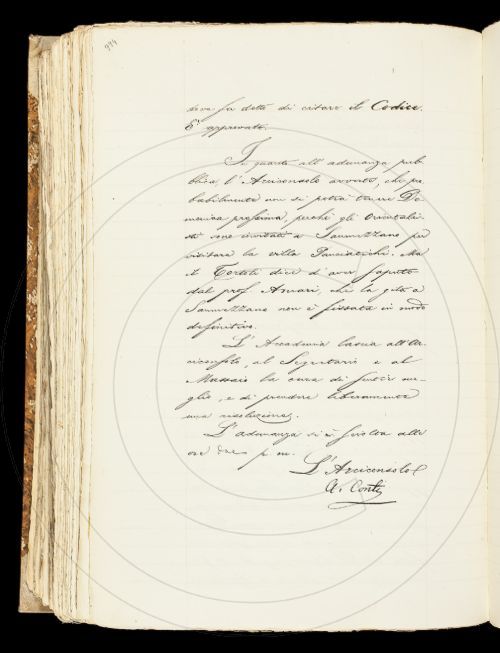 974
deve fa detto di citare il Codice.
È approvato.
In quanto all' adunanza pub-
blica, l'Arciconsolo avverte, che pro-
babilmente non si potrà tenere Do-
menica prossima, perchè gli Orientali-
sti sono invitati a Sammezzano per
visitare la villa Panciatichi. Ma
il Tortoli dice d'aver saputo
dal prof. Amari, che la gita a
Sammezzano non è fissata in modo
definitivo.
L'Accademia lascia all'Ar-
ciconsolo, al Segretario e al
Massaio la cura di sentir me-
glio, e di prendere liberamente
una risoluzione.
L'adunanza si è sciolta alle
ore due p. m.
L'Arciconsolo
A. Conti